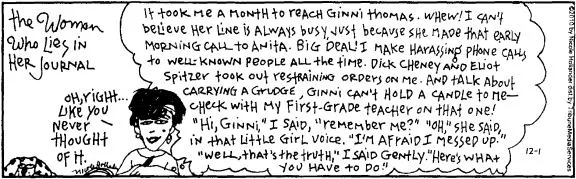 the Woman
Who Lies in
Her Journal
It took me a month to reach Ginni Thomas. Whew! I can't
believe her line is always busy just because she made that early
morning call to Anita. Big deal! I make harassing phone calls
to well-known people all the time. Dick Cheney and Eliot
Spitzer took out restraining orders on me. And talk about
carrying a grudge, Ginni can't hold a candle to me—
check with my first-grade teacher on that one!
"Hi, Ginni," I said, "remember me?" "Oh," she said,
in that little girl voice. "I'm afraid I messed up."
"Well, that's the truth," I said gently. "Here's what
you have to do."
Oh, right...
like you
never
thought
of it.
12-1
©2010 by Nicole Hollander dist by Tribune Media Services